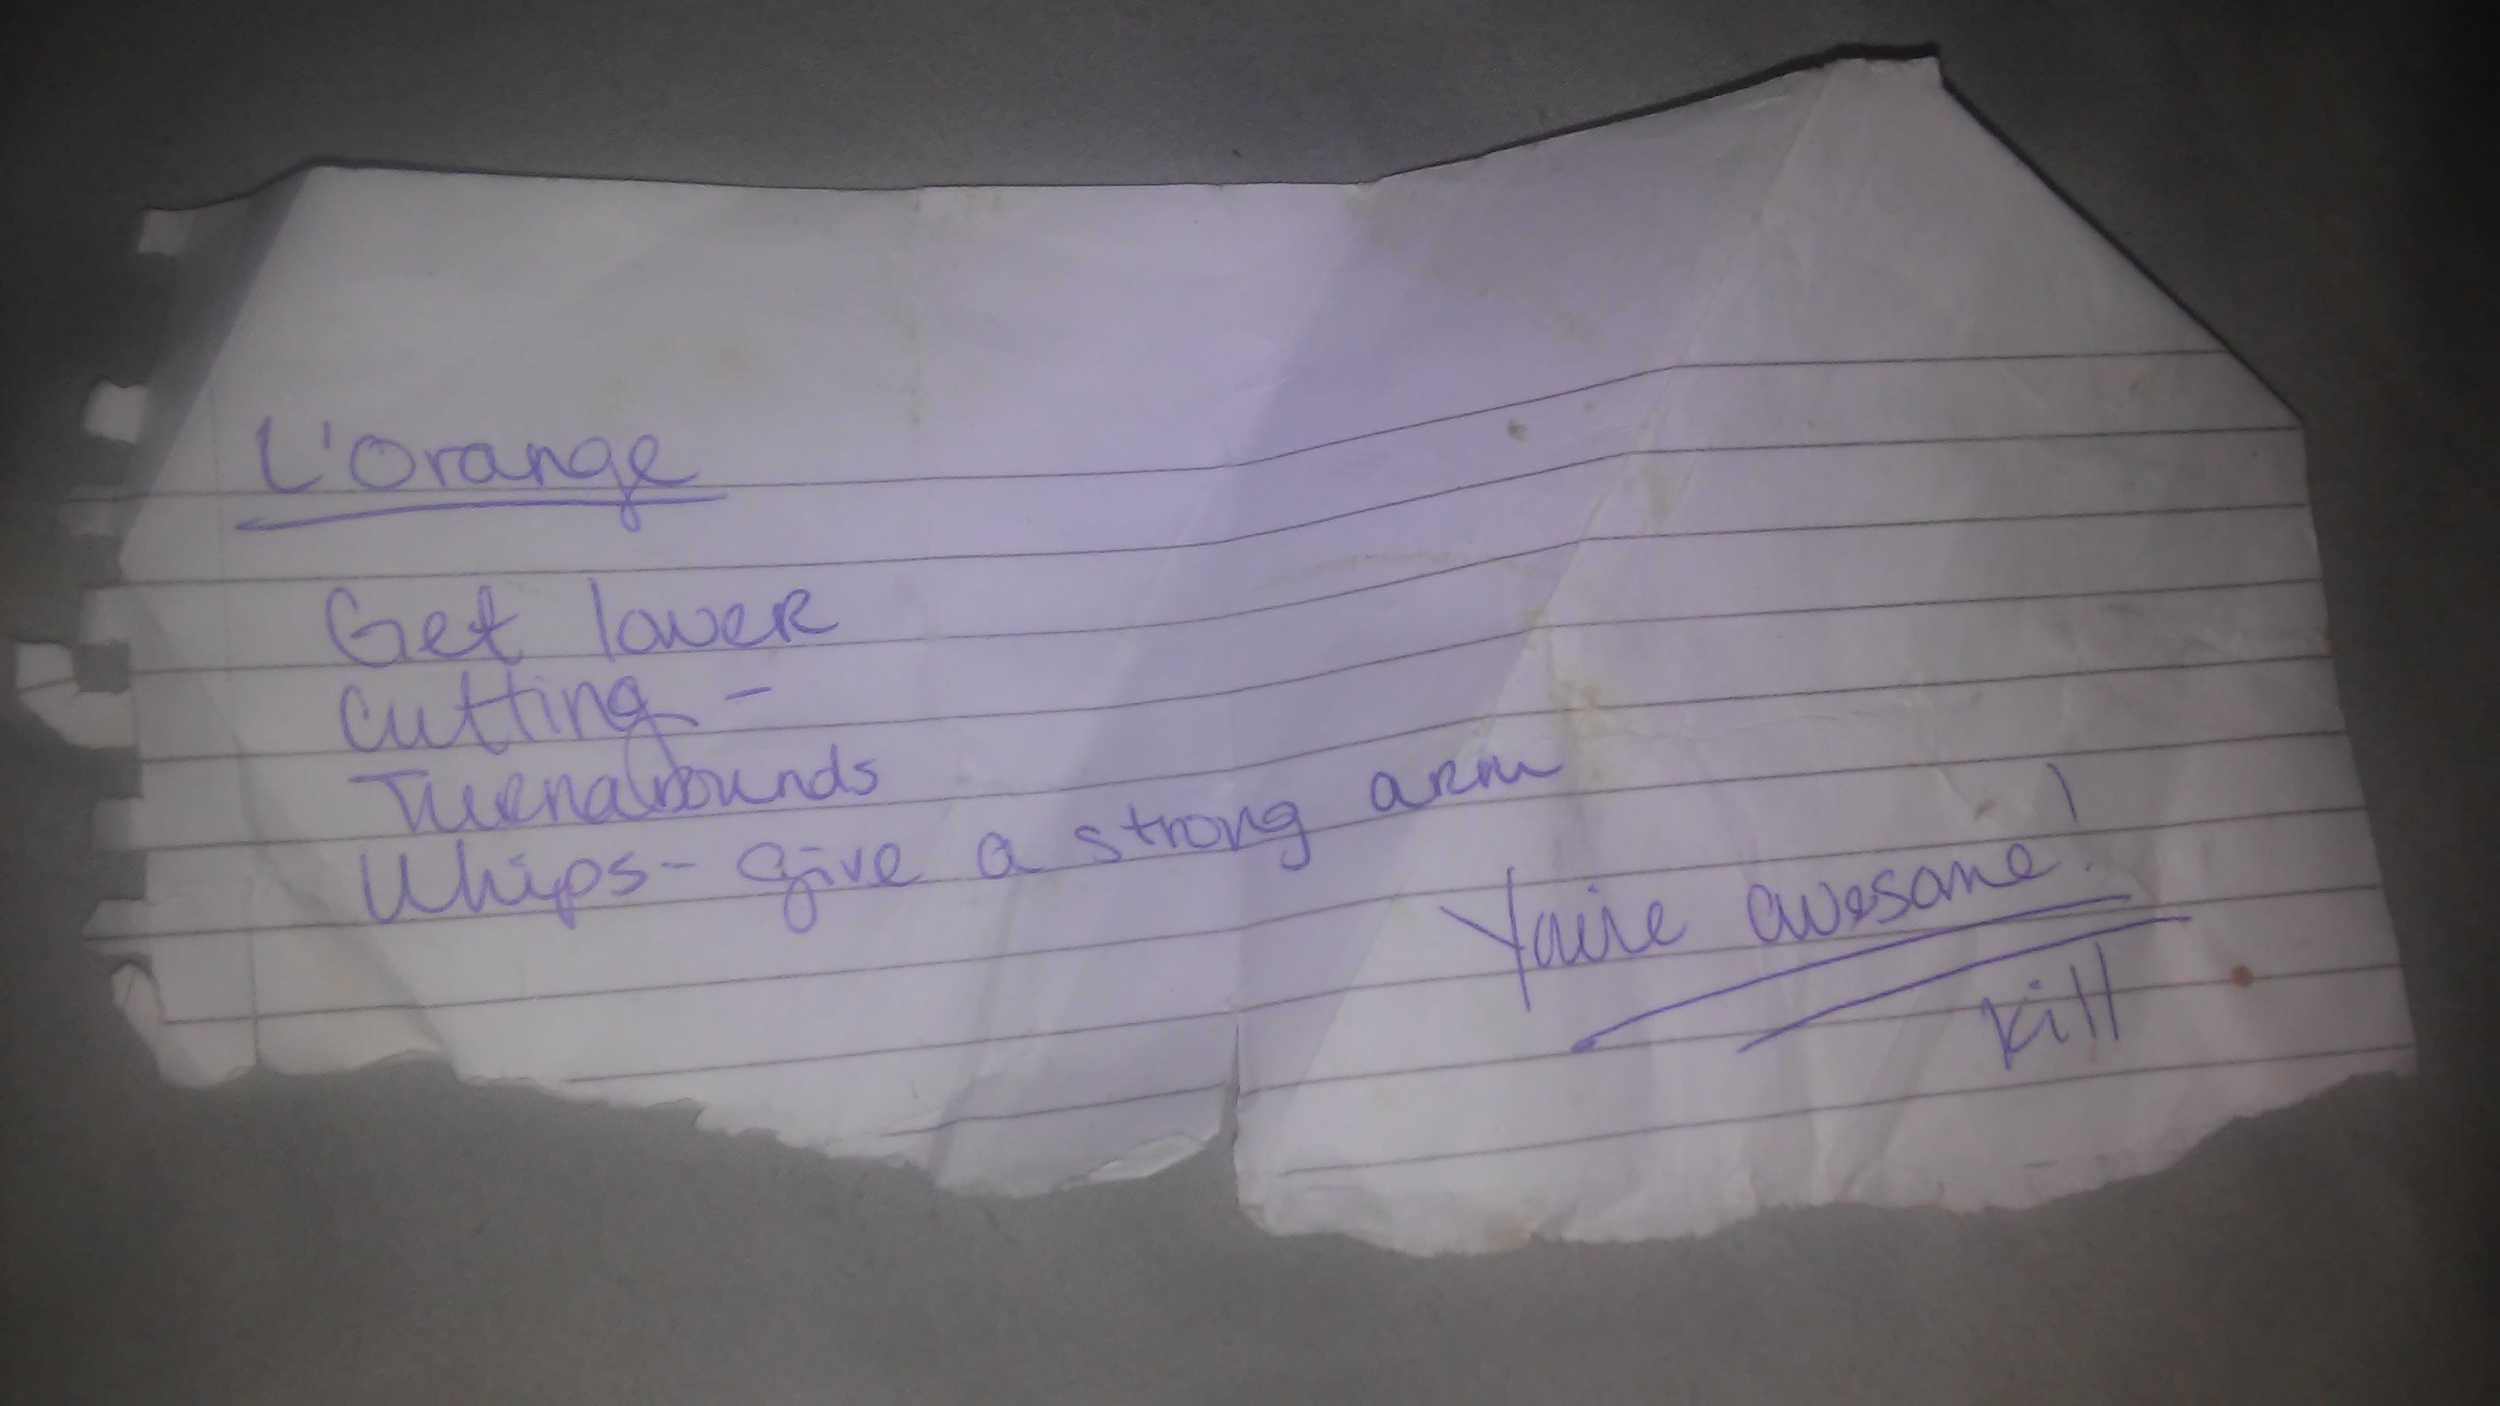 L'Orange
Get lower
cutting -
Turnarounds
Whips - give a strong arm
You're awesome!
Kill